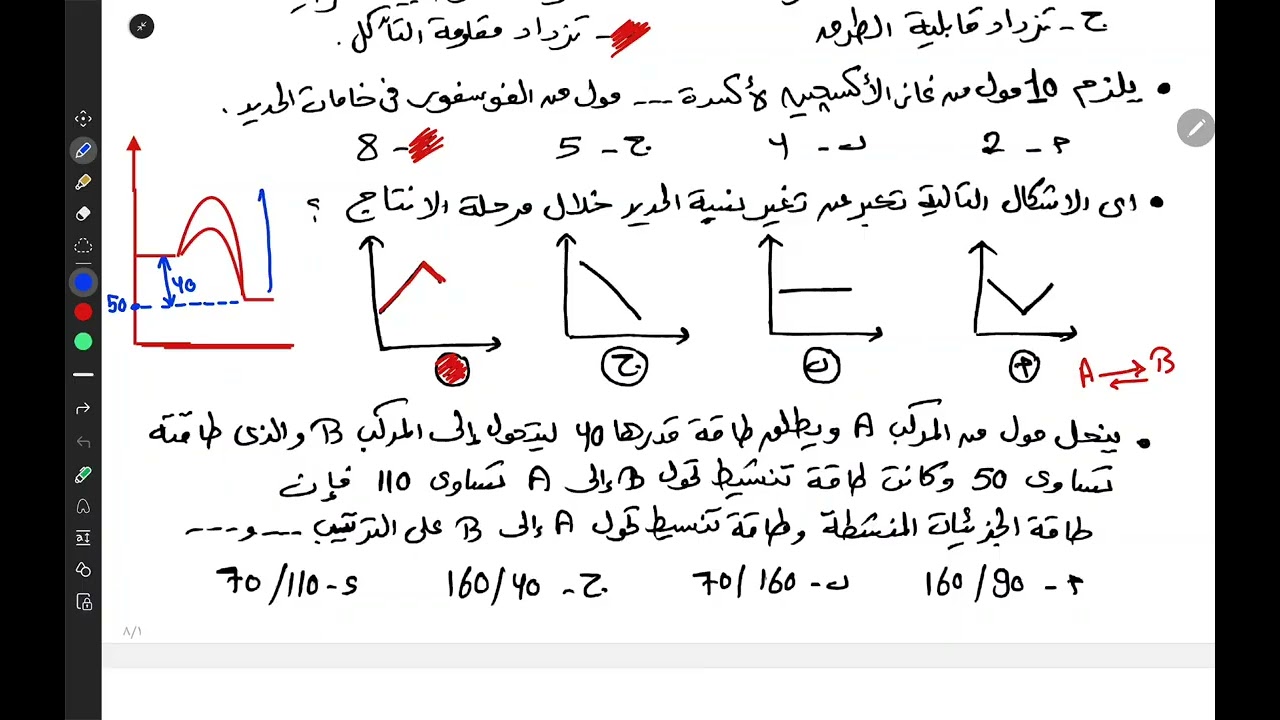 ج - تزداد قابلية الطرق - تزداد مقاومة التآكل .
• يلزم 10 مول من غاز الأكسجين لأكسدة --- مول من الفوسفور فى خامات الحديد .
م - 2 ب - 4 ج - 5 - 8
• اى الاشكال التالية تعبر عن تغير نسبة الحديد خلال مرحلة الانتاج ؟
40
50
م ب ج
A ⇌ B
• ينحل مول من المركب A ويطلق طاقة قدرها 40 ليتحول إلى المركب B والذى طاقته
تساوى 50 وكانت طاقة تنشيط تحول B إلى A تساوى 110 فإن
طاقة الجزئيات المنشطة وطاقة تنشيط تحول A إلى B على الترتيب --- و ---
م - 90/160 ب - 160/70 ج - 40/160 د - 110/70
٨/١